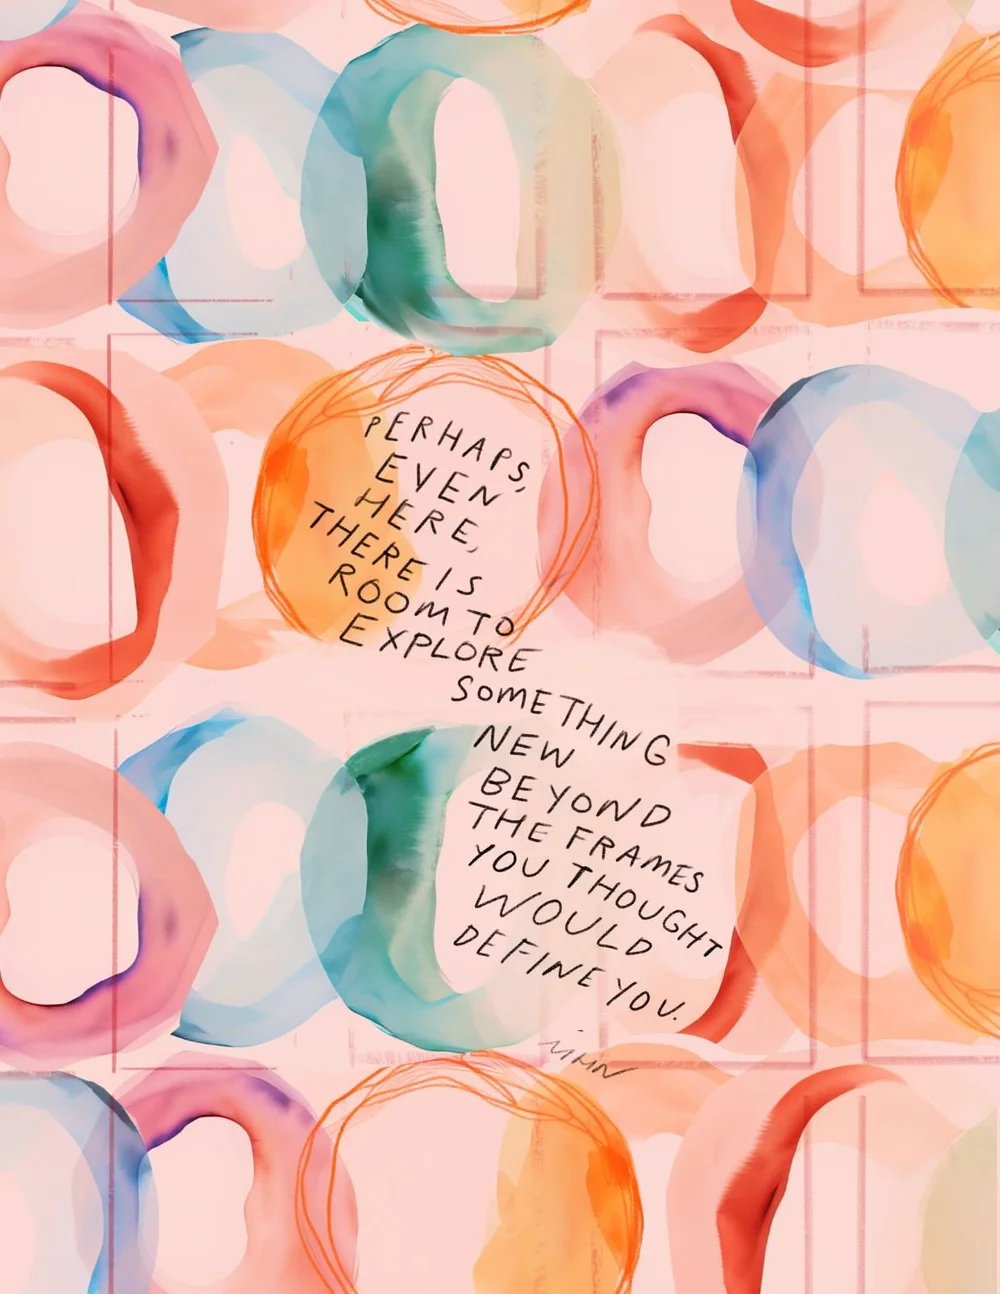 PERHAPS,
EVEN
HERE,
THERE IS
ROOM TO
EXPLORE
SOMETHING
NEW
BEYOND
THE FRAMES
YOU THOUGHT
WOULD
DEFINE YOU.
MHN